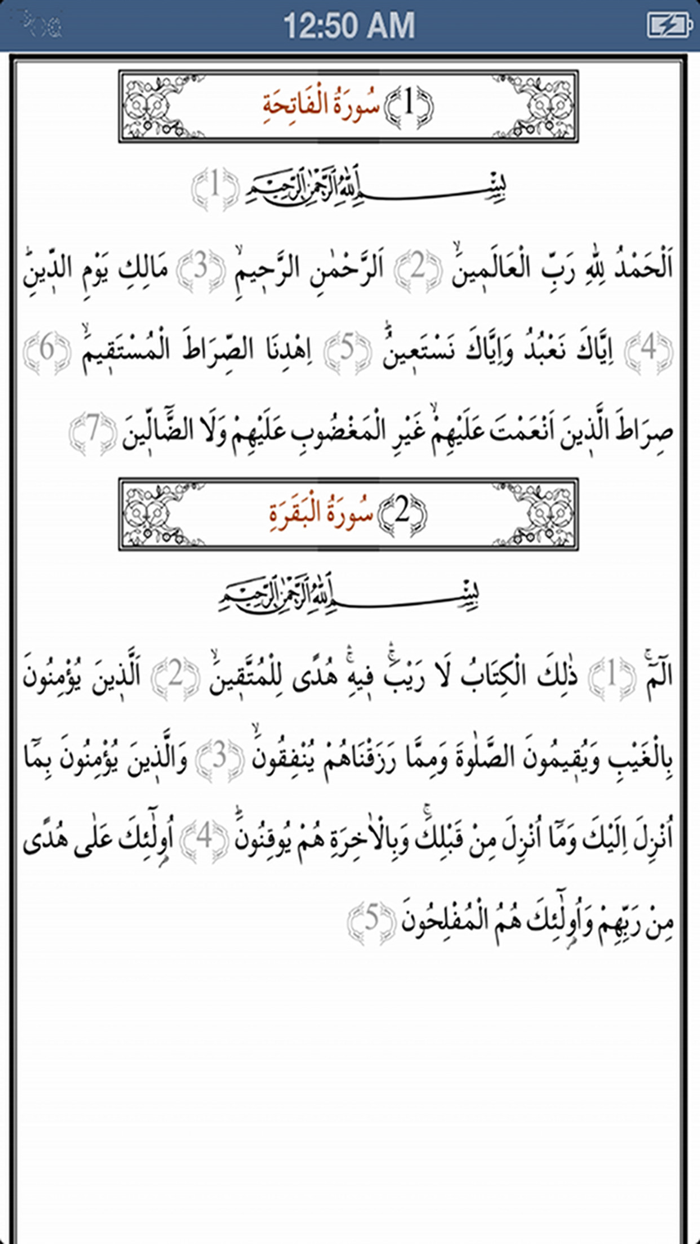 12:50 AM
(1) سُورَةُ الْفَاتِحَةِ
بِسْمِ اللّٰهِ الرَّحْمٰنِ الرَّحِيمِ (1)
اَلْحَمْدُ لِلّٰهِ رَبِّ الْعَالَمٖينَۙ (2) اَلرَّحْمٰنِ الرَّحٖيمِۙ (3) مَالِكِ يَوْمِ الدّٖينِؕ
(4) اِيَّاكَ نَعْبُدُ وَاِيَّاكَ نَسْتَعٖينُؕ (5) اِهْدِنَا الصِّرَاطَ الْمُسْتَقٖيمَۙ (6)
صِرَاطَ الَّذٖينَ اَنْعَمْتَ عَلَيْهِمْۙ غَيْرِ الْمَغْضُوبِ عَلَيْهِمْ وَلَا الضَّٓالّٖينَ (7)
(2) سُورَةُ الْبَقَرَةِ
بِسْمِ اللّٰهِ الرَّحْمٰنِ الرَّحِيمِ
الٓمٓۚ (1) ذٰلِكَ الْكِتَابُ لَا رَيْبَۚۛ فٖيهِۚۛ هُدًى لِلْمُتَّقٖينَۙ (2) اَلَّذٖينَ يُؤْمِنُونَ
بِالْغَيْبِ وَيُقٖيمُونَ الصَّلٰوةَ وَمِمَّا رَزَقْنَاهُمْ يُنْفِقُونَۙ (3) وَالَّذٖينَ يُؤْمِنُونَ بِمَٓا
اُنْزِلَ اِلَيْكَ وَمَٓا اُنْزِلَ مِنْ قَبْلِكَۚ وَبِالْاٰخِرَةِ هُمْ يُوقِنُونَؕ (4) اُو۬لٰٓئِكَ عَلٰى هُدًى
مِنْ رَبِّهِمْ وَاُو۬لٰٓئِكَ هُمُ الْمُفْلِحُونَ (5)